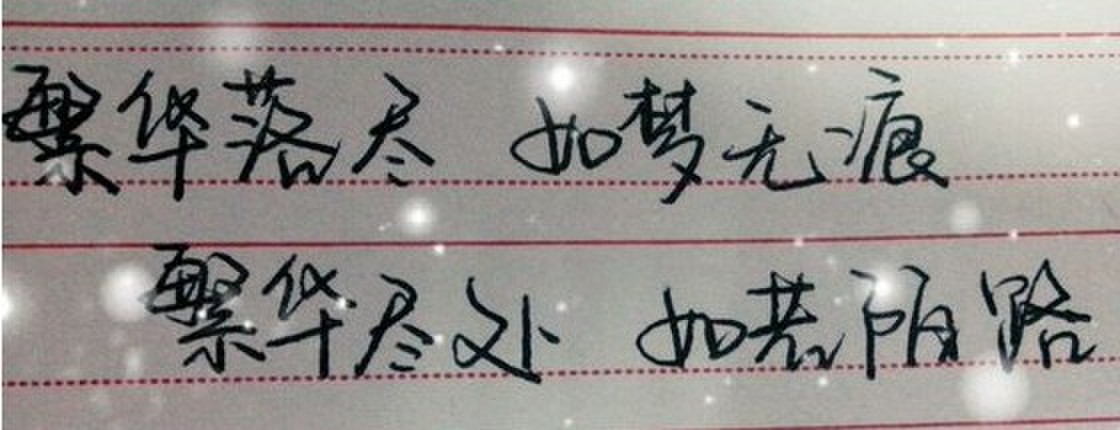 繁华落尽 如梦无痕
繁华尽处 如若陌路